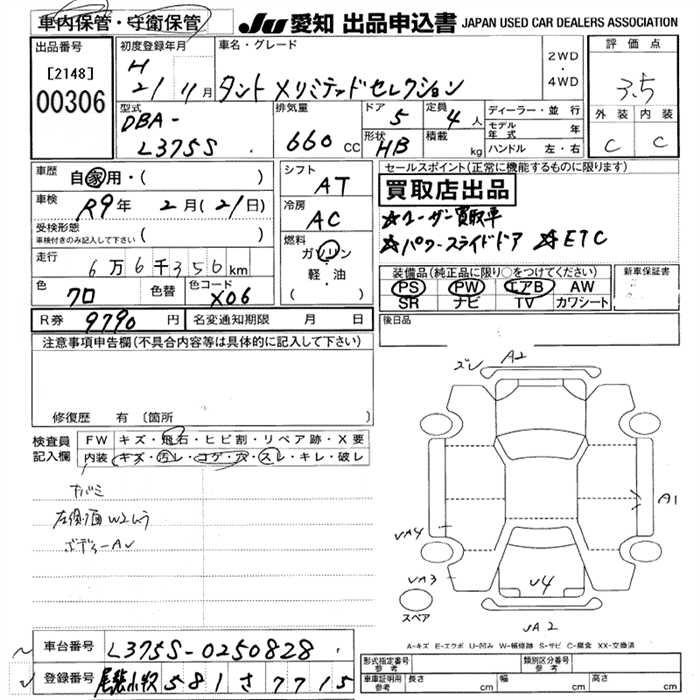 車内保管・守衛保管
JU 愛知 出品申込書 JAPAN USED CAR DEALERS ASSOCIATION
出品番号
[2148]
00306
初度登録年月
H
21/11月
車名・グレード
タント Xリミテッドセレクション
2WD
・
4WD
評価点
3.5
外装 内装
C C
型式
DBA-
L375S
排気量
660 CC
ドア
5
定員
4人
形状
HB
積載
kg
ディーラー・並行
モデル年式 年
ハンドル 左・右
車歴
自家用・( )
車検
R9年 2月(21日)
受検形態
車検付きのみ記入して下さい ( )
走行
6万6千356km
色
クロ
色替
色コード
X06
シフト
AT
冷房
AC
燃料
ガソリン
軽・油
( )
セールスポイント(正常に機能するものに限ります)
買取店出品
☆ユーザー買取車
☆パワースライドドア ☆ETC
装備品(純正品に限り○をつけてください)
PS PW エアB AW
SR ナビ TV カワシート
新車保証書
R券 9790円
名変通知期限 月 日
後日品
注意事項申告欄(不具合内容等は具体的に記入して下さい)
修復歴 有 〔箇所
検査員
記入欄
FW キズ・飛石・ヒビ割・リペア跡・X要
内装 キズ・汚レ・コゲ・穴・スレ・キレ・破レ
左側面W2しう
ボディーAU
ズレ A2
A1
UA4
UA3
U4
UA2
スペア
A-キズ E-エクボ U-凹み W-補修跡 S-サビ C-腐食 XX-交換済
車台番号 L375S-0250828
登録番号 尾張小牧 581さ7715
形式指定番号
参考
類別区分番号
参考
車庫証明用
参考
長さ cm 幅 cm 高さ cm